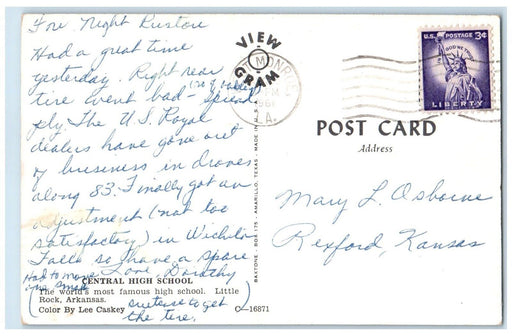 For Night Ruston
Had a great time
yesterday. Right rear
tire went bad -
ply. The U.S. Royal
dealers have gone out
of business in droves
along 83. Finally got an
adjustment (not too
satisfactory) in Wichita
Falls so have a spare
Love, Dorothy
(Had to move
one
suitcase to get
the tire.)
CENTRAL HIGH SCHOOL
The world's most famous high school. Little
Rock, Arkansas.
Color By Lee Caskey
C-16871
VIEW
GRAM
BAXTONE, BOX 175 - AMARILLO, TEXAS - MADE IN U.S.A.
MONROE
PM
1961
LA.
U.S. POSTAGE 3¢
IN GOD WE TRUST
LIBERTY
POST CARD
Address
Mary L. Osborne
Rexford, Kansas